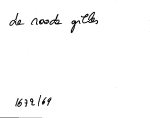 de roode gilles
1672/69